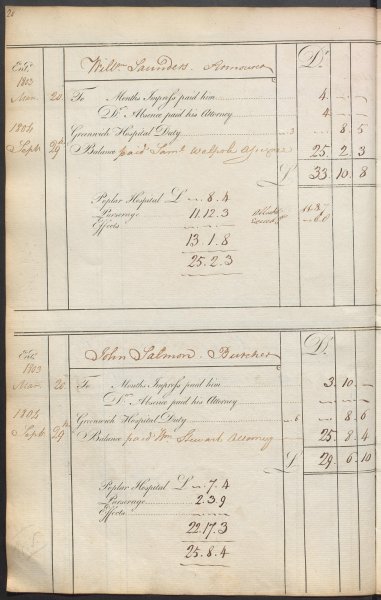 26
Entd. Willm. Saunders. Armourer Dr.
1803
Mar. 20. To Months Impress paid him 4. — —
Do. Absence paid his Attorney 4. — —
1804 Greenwich Hospital Duty 3 — 8. 5
Septr. 29th Balance paid Saml. Walpole 25. 2. 3
£ 33. 10. 8
Poplar Hospital £ —. 8. 4
Purserage 11. 12. 3
Effects
13. 1. 8
25. 2. 3
Entd. John Salmon. Butcher Dr.
1803
Mar. 20. To Months Impress paid him 3. 10. —
Do. Absence paid his Attorney — — —
1804 Greenwich Hospital Duty 6 — 8. 6
Septr. 29th Balance paid Wm. Stewart Attorney 25. 8. 4
£ 29. 6. 10
Poplar Hospital £ —. 7. 4
Purserage 2. 3. 9
Effects
22. 17. 3
25. 8. 4